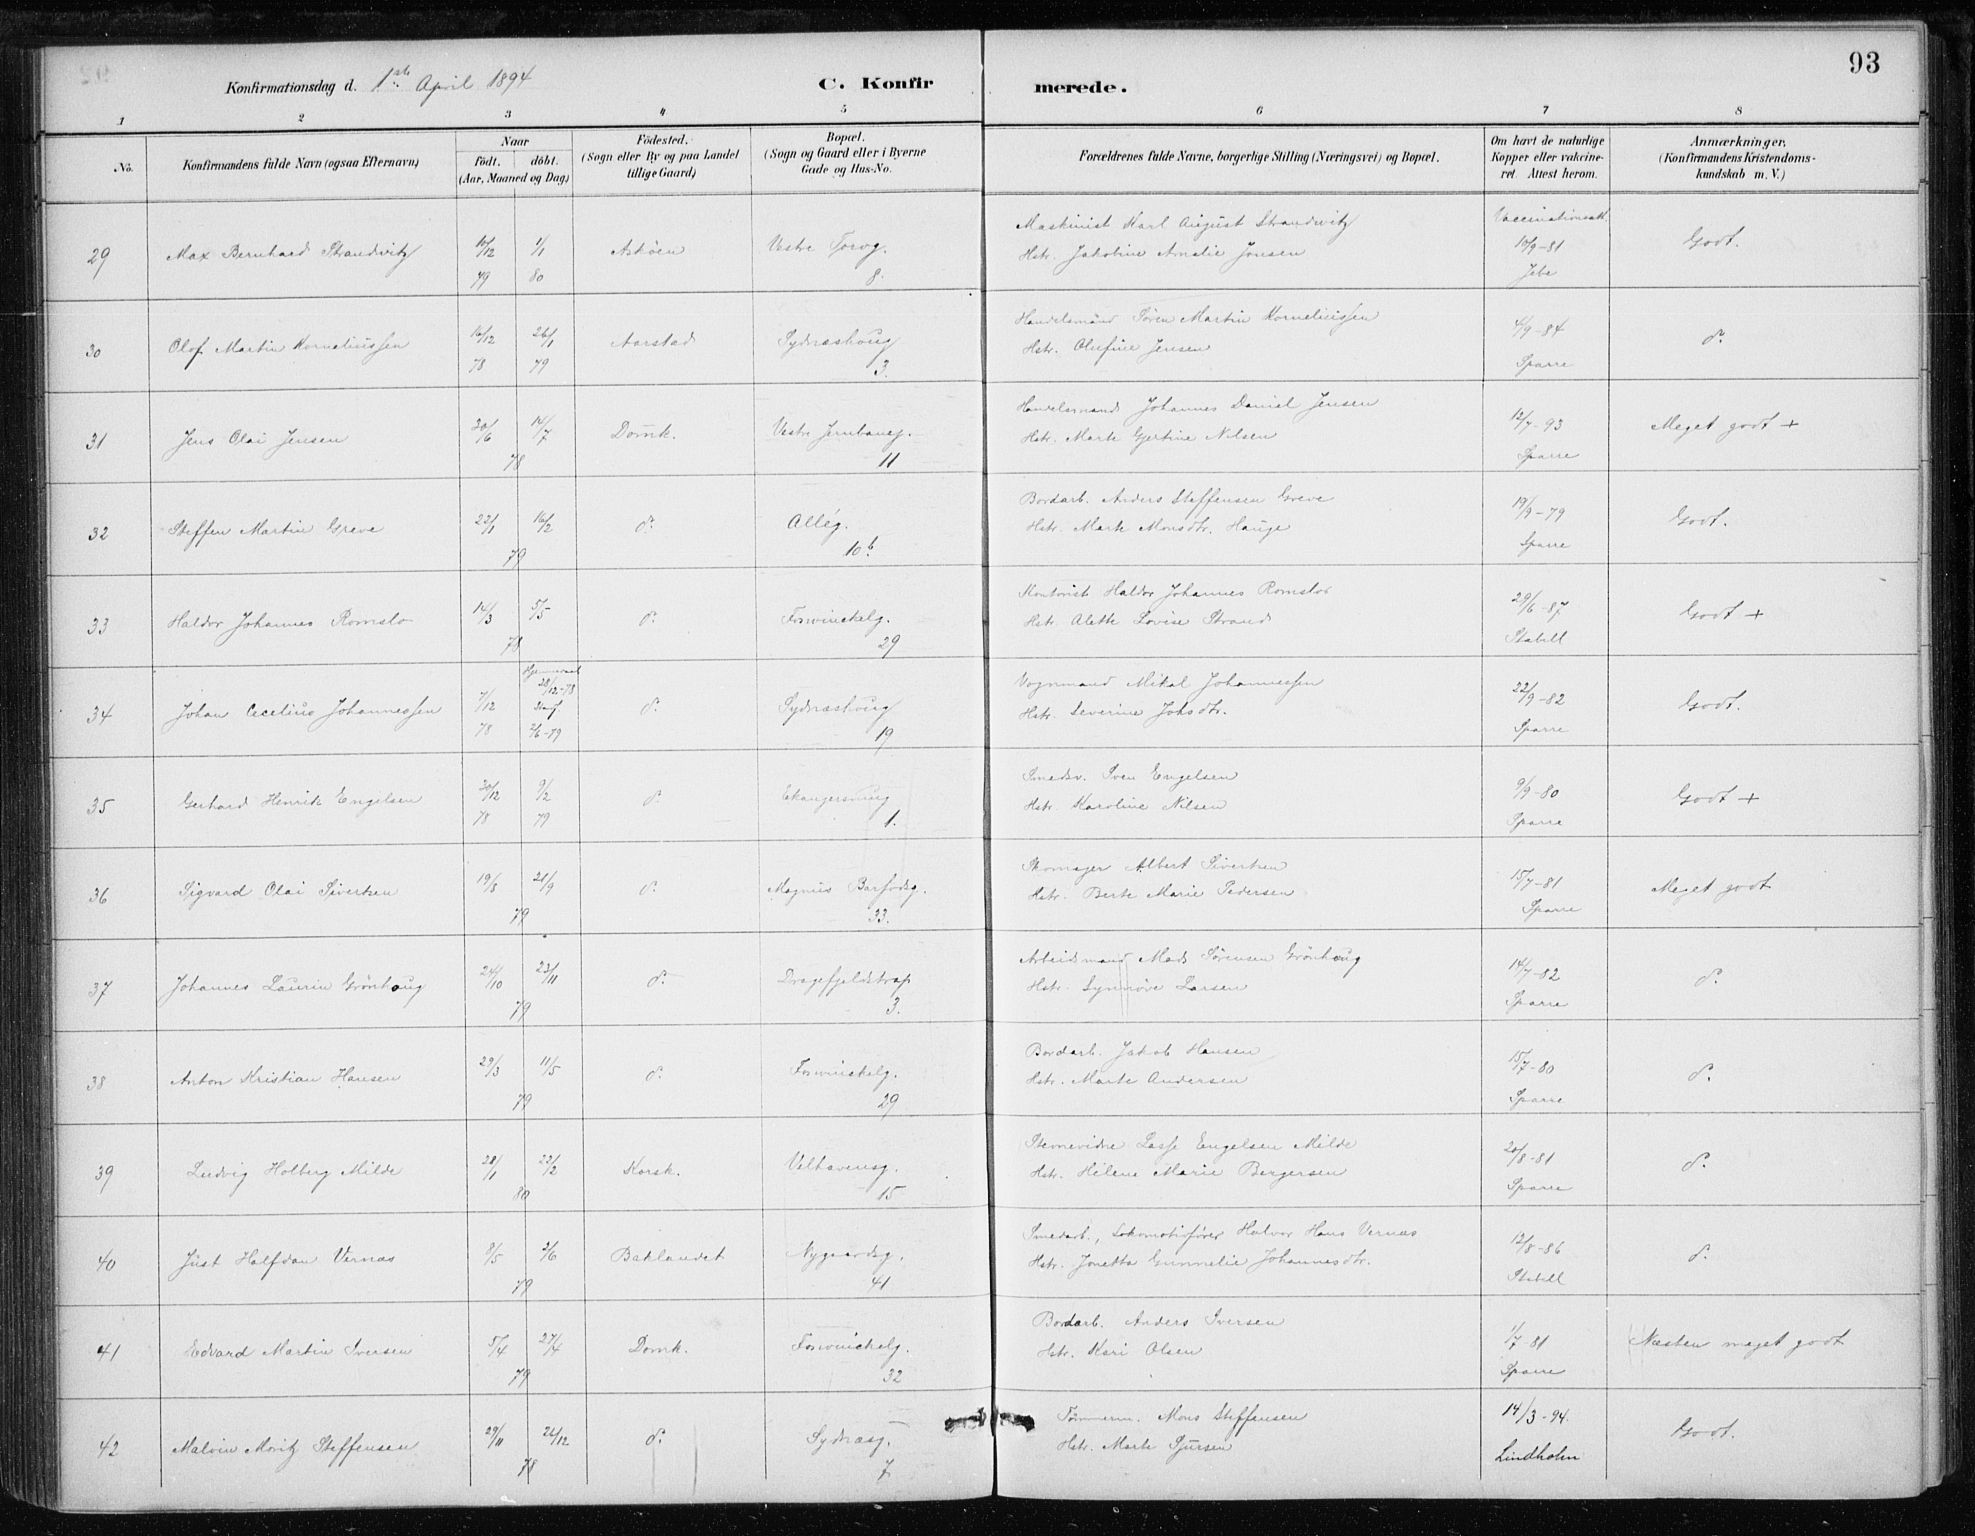 93
Konfirmationsdag d. 1ste April 1894
C. Konfirmerede.
1 2 3 4 5 6 7 8
No.
Konfirmandens fulde Navn (ogsaa Efternavn)
Naar
födt. döbt.
(Aar, Maaned og Dag)
Födested.
(Sogn eller By og paa Landet
tillige Gaard)
Bopæl.
(Sogn og Gaard eller i Byerne
Gade og Hus-No.
Forældrenes fulde Navne, borgerlige Stilling (Næringsvei) og Bopæl.
Om havt de naturlige
Kopper eller vakcine-
ret. Attest herom.
Anmærkninger,
(Konfirmandens Kristendoms-
kundskab m. V.)
29 Max Bernhard Strandvitz 10/12 79 1/1 80 Askøen Vestre Torvg. 8.
Maskinist Karl August Strandvitz
Hstr. Jakobine Amalie Jonsen
Vaccinationsatt. 10/9-81 Jebe
Godt.
30 Olof Martin Korneliussen 16/12 78 26/1 79 Aarstad Sydnæshoug 3.
Handelsmand Sören Martin Korneliussen
Hstr. Olufine Jensen
4/9-84 Sparre
do.
31 Jens Olai Jensen 30/6 14/7 78 Domk. Vestre Jernbaneg. 11
Handelsmand Johannes Daniel Jensen
Hstr. Marte Gjertine Nilsen
12/7-93 Sparre
Meget godt +
32 Steffen Martin Greve 22/1 16/2 79 do. Allég. 10b.
Bordarb. Anders Steffensen Greve
Hstr. Marte Monsdtr. Hauge
19/9-79 Sparre
Godt.
33 Haldor Johannes Romslo 14/3 5/5 78 do. Fosvinckelg. 29
Kontorist Haldor Johannes Romslo
Hstr. Alette Lovise Strand
29/6-87 Stabell
Godt +
34 Johan Cecelius Johannessen 7/12 78 28/12-78 2/6-79 do. Sydnæshoug 19
Vognmand Mikal Johannessen
Hstr. Severine Johsdtr.
22/9-82 Sparre
Godt.
35 Gerhard Henrik Engelsen 30/12 78 9/2 79 do. Ekangersmug 1.
Smedsv. Sven Engelsen
Hstr. Karoline Nilsen
9/9-80 Sparre
Godt +
36 Sigvard Olai Sivertsen 19/8 21/9 79 do. Magnus Barfodsg. 33.
Skomager Albert Sivertsen
Hstr. Berte Marie Pedersen
15/7-81 Sparre
Meget godt
37 Johannes Laurin Grönhoug 24/10 23/11 79 do. Dragefjeldstrap 3.
Arbeidsmand Mads Sörensen Grönhoug
Hstr. Synnöve Larsen
14/7-82 Sparre
do.
38 Anton Kristian Hansen 29/3 11/5 79 do. Fosvinckelg. 29
Bordarb. Jakob Hansen
Hstr. Marte Andersen
15/7-80 Sparre
do.
39 Ludvig Holberg Milde 28/1 22/2 80 Korsk. Velhavensg. 15
Stevnevidne Lasse Engelsen Milde
Hstr. Helene Marie Bergersen
20/8-81 Sparre
do.
40 Just Halfdan Vernæs 8/5 2/6 79 Baklandet Nygaardsg. 41
Smedarb., Lokomotivförer Halvor Hans Vernæs
Hstr. Jonetta Gunnelie Johannesdtr.
12/8-86 Stabell
do.
41 Edvard Martin Iversen 5/4 27/4 79 Domk. Fosvinckelg. 32
Bordarb. Anders Iversen
Hstr. Kari Olsen
1/7-81 Sparre
Næsten meget godt
42 Malvin Moritz Steffensen 29/11 26/12 78 do. Sydnæsg. 7
Tömmerm. Mons Steffensen
Hstr. Marte Sjursen
14/3-94. Lindholm
Godt.